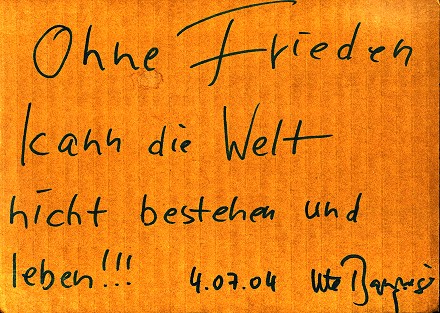 Ohne Frieden
kann die Welt
nicht bestehen und
leben!!! 4.07.04 Ute